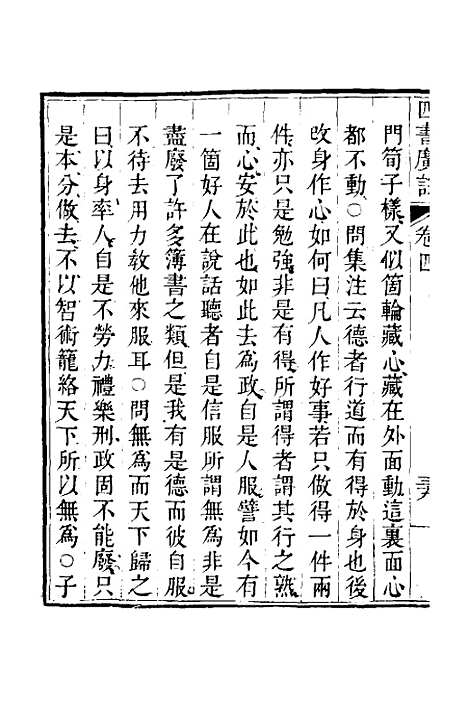 四書廣註 卷四
門筍子樣又似箇輪藏心藏在外面動這裏面心
都不動○問集注云德者行道而有得於身也後
改身作心如何曰凡人作好事若只做得一件兩
件亦只是勉強非是有得所謂得者謂其行之熟
而心安於此也如此去為政自是人服譬如今有
一箇好人在說話聽者自是信服所謂無為非是
盡廢了許多簿書之類但是我有是德而彼自服
不待去用力敎他來服耳○問無為而天下歸之
曰以身率人自是不勞力禮樂刑政固不能廢只
是本分做去不以智術籠絡天下所以無為○子